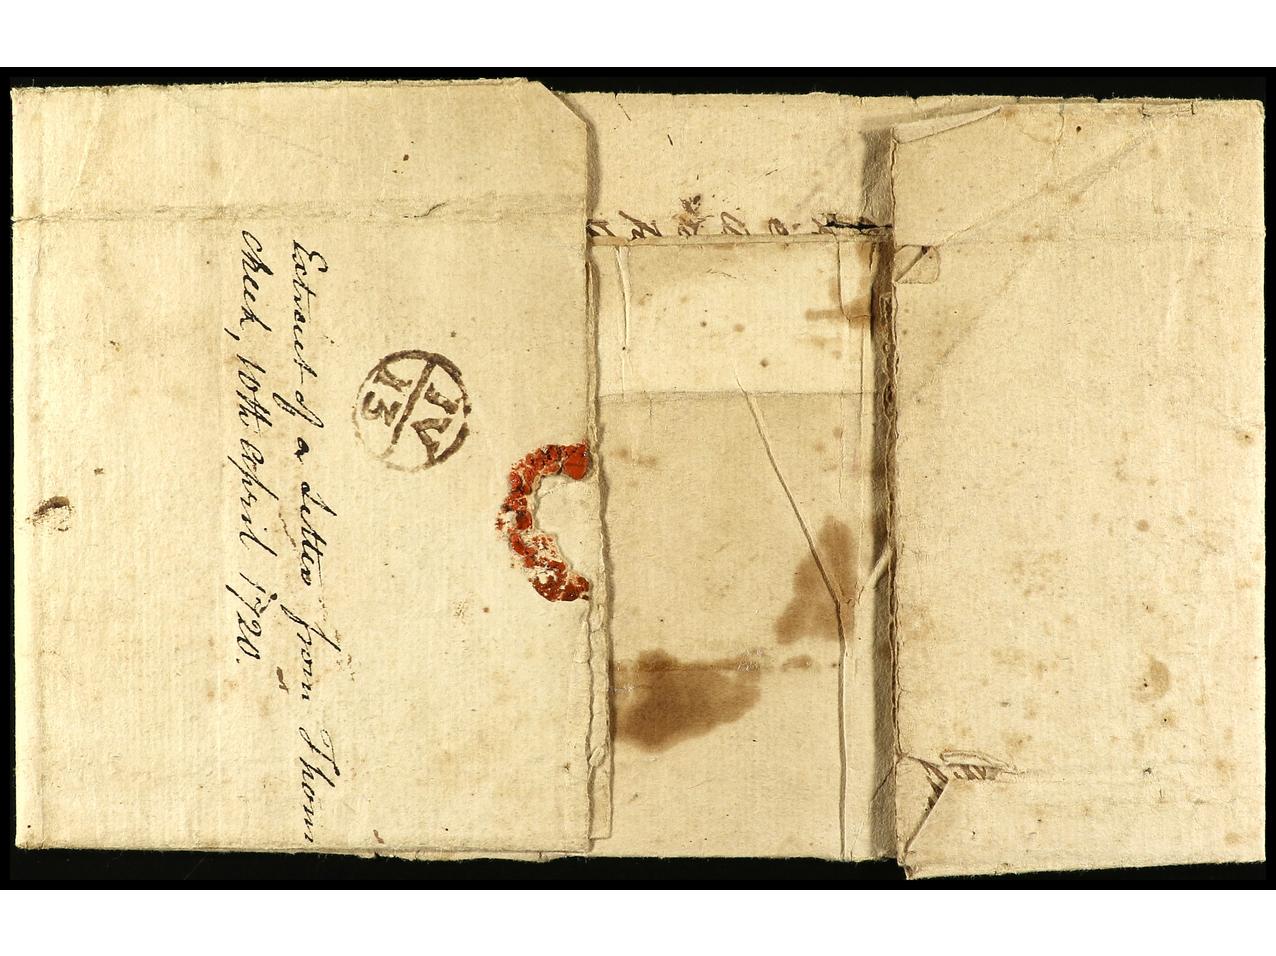 Extract of a Letter from Thom
cheek, 10th april 1720.
IV
13